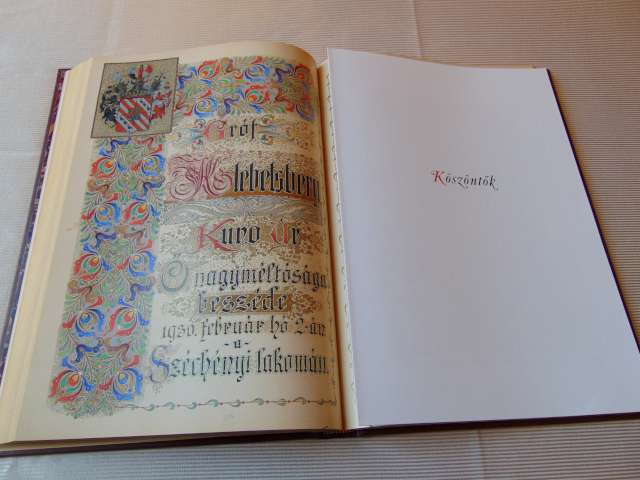 Gróf
Klebelsberg
Kuno Úr
Ő nagyméltósága
beszéde
1930. február hó 2-án
-a-
Széchényi lakomán.
Köszöntők